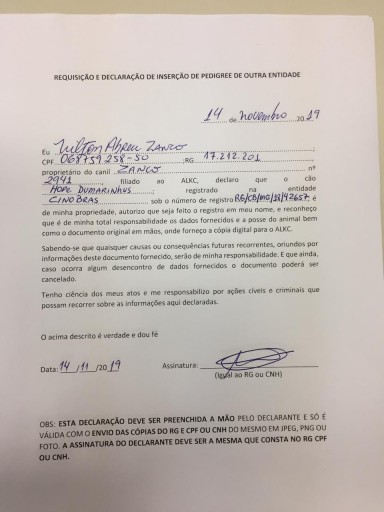 REQUISIÇÃO E DECLARAÇÃO DE INSERÇÃO DE PEDIGREE DE OUTRA ENTIDADE
14 de novembro 2019
Eu Nilton Abreu Zanco
CPF 068759258-50 ;RG 17.212.201,
proprietário do canil ZANCO nº
2941, filiado no ALKC, declaro que o cão
HOPE DUMARINHUS, registrado na entidade
CINOBRAS sob o número de registro RG/CB/MG/18/42657, é
de minha propriedade, autorizo que seja feito o registro em meu nome, e reconheço
que é de minha total responsabilidade os dados fornecidos e a posse do animal bem
como o documento original em mãos, onde forneço a cópia digital para o ALKC.
Sabendo-se que quaisquer causas ou consequências futuras recorrentes, oriundos por
informações deste documento fornecido, serão de minha responsabilidade. E que ainda,
caso ocorra algum desencontro de dados fornecidos o documento poderá ser
cancelado.
Tenho ciência dos meus atos e me responsabilizo por ações cíveis e criminais que
possam recorrer sobre as informações aqui declaradas.
O acima descrito é verdade e dou fé
Data: 14/11/2019 Assinatura:
(Igual ao RG ou CNH)
OBS: ESTA DECLARAÇÃO DEVE SER PREENCHIDA A MÃO PELO DECLARANTE E SÓ É
VÁLIDA COM O ENVIO DAS CÓPIAS DO RG E CPF OU CNH DO MESMO EM JPEG, PNG OU
FOTO. A ASSINATURA DO DECLARANTE DEVE SER A MESMA QUE CONSTA NO RG CPF
OU CNH.